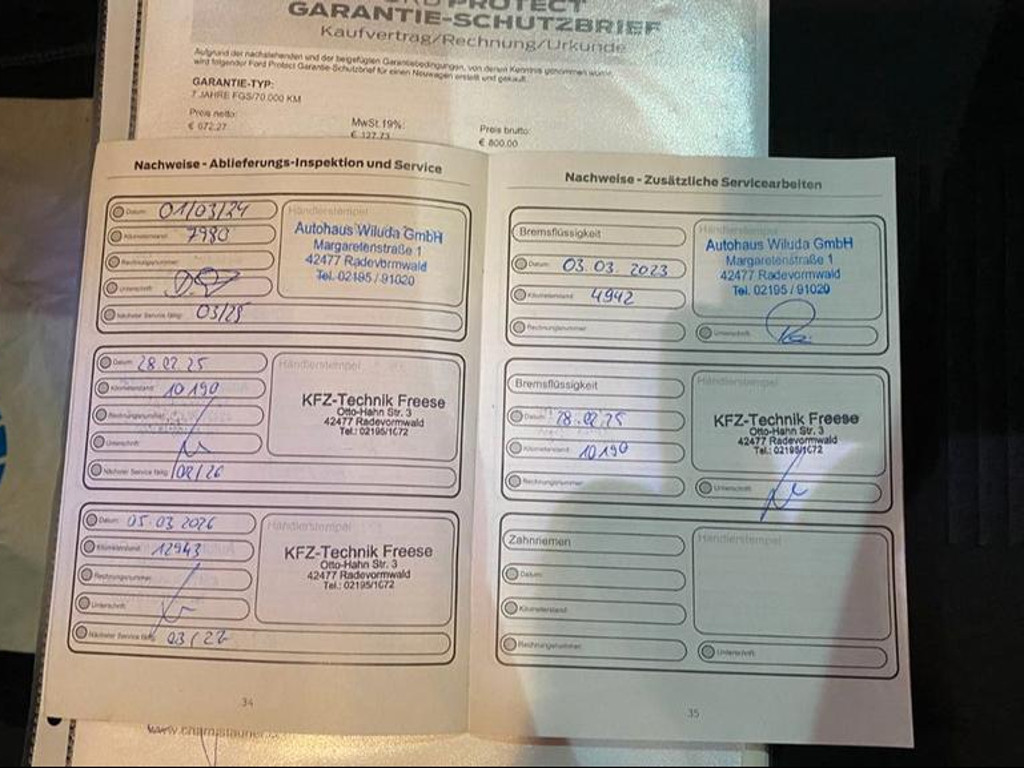 PROTECT
GARANTIE-SCHUTZBRIEF
Kaufvertrag/Rechnung/Urkunde
Aufgrund der nachstehenden und der beigefügten Garantiebedingungen, von denen Kenntnis genommen wurde,
wird folgender Ford Protect Garantie-Schutzbrief für einen Neuwagen erstellt und gekauft.
GARANTIE-TYP:
7 JAHRE FGS/70.000 KM
Preis netto:
€ 672,27
MwSt. 19%:
€ 127,73
Preis brutto:
€ 800,00
Nachweise - Ablieferungs-Inspektion und Service
Datum: 01/03/24
Kilometerstand: 7980
Rechnungsnummer:
Unterschrift:
Nächster Service fällig: 03/25
Händlerstempel
Autohaus Wiluda GmbH
Margaretenstraße 1
42477 Radevormwald
Tel. 02195 / 91020
Datum: 28.02.25
Kilometerstand: 10190
Rechnungsnummer:
Unterschrift:
Nächster Service fällig: 02/26
Händlerstempel
KFZ-Technik Freese
Otto-Hahn Str. 3
42477 Radevormwald
Tel.: 02195/1672
Datum: 05.03.2026
Kilometerstand: 12943
Rechnungsnummer:
Unterschrift:
Nächster Service fällig: 03/27
Händlerstempel
KFZ-Technik Freese
Otto-Hahn Str. 3
42477 Radevormwald
Tel.: 02195/1672
34
Nachweise - Zusätzliche Servicearbeiten
Bremsflüssigkeit
Datum: 03.03.2023
Kilometerstand: 4942
Rechnungsnummer:
Händlerstempel
Autohaus Wiluda GmbH
Margaretenstraße 1
42477 Radevormwald
Tel. 02195 / 91020
Unterschrift:
Bremsflüssigkeit
Datum: 28.02.25
Kilometerstand: 10190
Rechnungsnummer:
Händlerstempel
KFZ-Technik Freese
Otto-Hahn Str. 3
42477 Radevormwald
Tel.: 02195/1672
Unterschrift:
Zahnriemen
Datum:
Kilometerstand:
Rechnungsnummer:
Händlerstempel
Unterschrift:
35